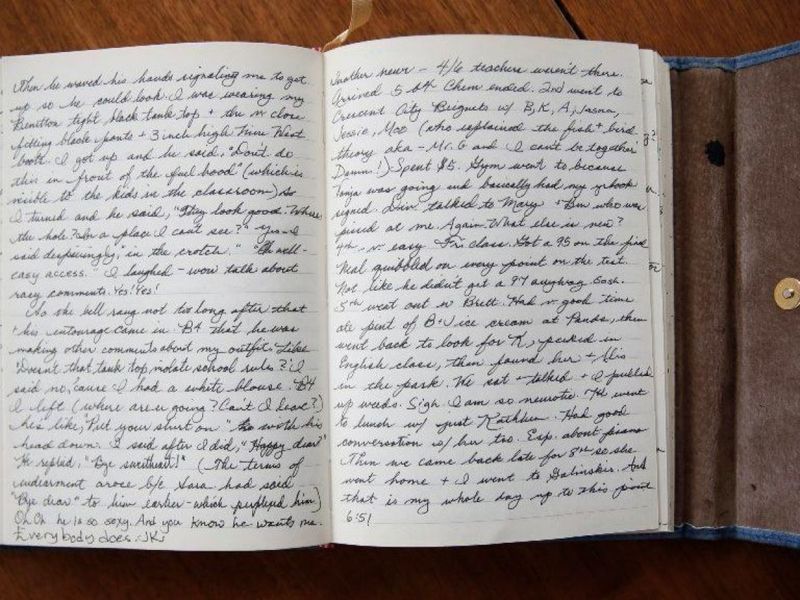 Then he waved his hands signaling me to get
up so he could look. I was wearing my
Benetton tight black tank top + the v. close
fitting black pants + 3 inch high Nine West
boots. I got up and he said, "Don't do
this in front of the fuel hood" (which is
visible to the kids in the classroom) so
I turned and he said, "They look good. Where's
the hole? In a place I can't see?" "Yes - I
said despairingly, "in the crotch." "Oh well-
easy access." I laughed - wow talk about
racy comments. Yes! Yes!
So the bell rang not too long after that
+ his entourage came in. B4 that he was
making other comments about my outfit. Like
"Doesn't that tank top violate school rules?" I
said no, 'cause I had a white blouse. B4
I left (where are u going? Can't I leave?)
he's like, "Put your shirt on" so with his
head down. I said after I did, "Happy dear?"
He replied, "Bye sweetheart!" (The terms of
endearment arose b/c Sara had said
"Bye dear" to him earlier - which perplexed him)
Oh Oh he is so sexy. And you know he wants me.
Everybody does. JK!
Another newr - 4/6 teachers weren't there.
Arrived 5 b4 Chem ended. 2nd went to
Crescent City Beignets w/ B, K, A, Jasna,
Jessie, Mat (who explained the fish + bird
theory aka - Mr. G and I can't be together
Damn!) Spent $5. Gym went to because
Tanja was going and basically had my yrbook
signed. Div. talked to Mary + Ben who was
pissed at me. Again. What else is new?
4th - v. easy Fri class. Got a 95 on the final
Neal quibbled on every point on the test.
Not like he didn't get a 97 anyway. Gosh.
5th went out w Brett. Had v. good time
ate pint of B+J ice cream at Panda, then
went back to look for K, peeked in
English class, then found her + Ubi
in the park. We sat + talked + I pulled
up weeds. Sigh. I am so neurotic. We went
to lunch w/ just Kathleen. Had good
conversation w/ her too. Esp. about piano
Then we came back late for 8th so she
went home + I went to Galinskis. And
that is my whole day up to this point
6:51